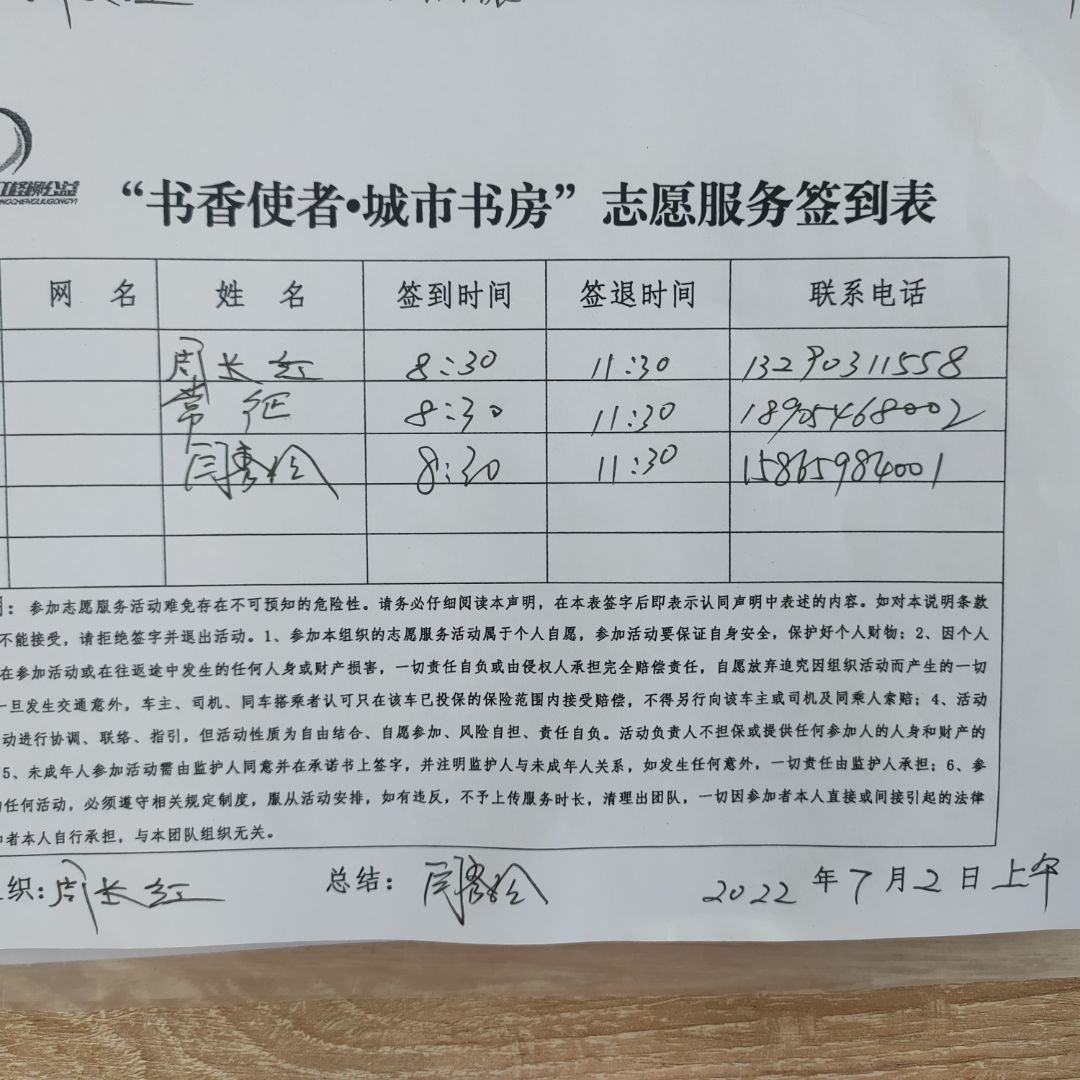 红柽柳公益
“书香使者•城市书房”志愿服务签到表
网 名 姓 名 签到时间 签退时间 联系电话
周长红 8:30 11:30 13290311558
常征 8:30 11:30 18905468002
闫秀玲 8:30 11:30 15865984001
：参加志愿服务活动难免存在不可预知的危险性。请务必仔细阅读本声明，在本表签字后即表示认同声明中表述的内容。如对本说明条款
不能接受，请拒绝签字并退出活动。1、参加本组织的志愿服务活动属于个人自愿，参加活动要保证自身安全，保护好个人财物；2、因个人
在参加活动或在往返途中发生的任何人身或财产损害，一切责任自负或由侵权人承担完全赔偿责任，自愿放弃追究因组织活动而产生的一切
一旦发生交通意外，车主、司机、同车搭乘者认可只在该车已投保的保险范围内接受赔偿，不得另行向该车主或司机及同乘人索赔；4、活动
动进行协调、联络、指引，但活动性质为自由结合、自愿参加、风险自担、责任自负。活动负责人不担保或提供任何参加人的人身和财产的
5、未成年人参加活动需由监护人同意并在承诺书上签字，并注明监护人与未成年人关系，如发生任何意外，一切责任由监护人承担；6、参
任何活动，必须遵守相关规定制度，服从活动安排，如有违反，不予上传服务时长，清理出团队，一切因参加者本人直接或间接引起的法律
者本人自行承担，与本团队组织无关。
织：周长红 总结：闫秀玲 2022年7月2日上午